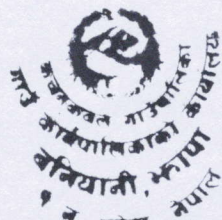 कचनकवल गाउँपालिका
गाउँ कार्यपालिकाको कार्यालय
बनियानी, झापा
नेपाल